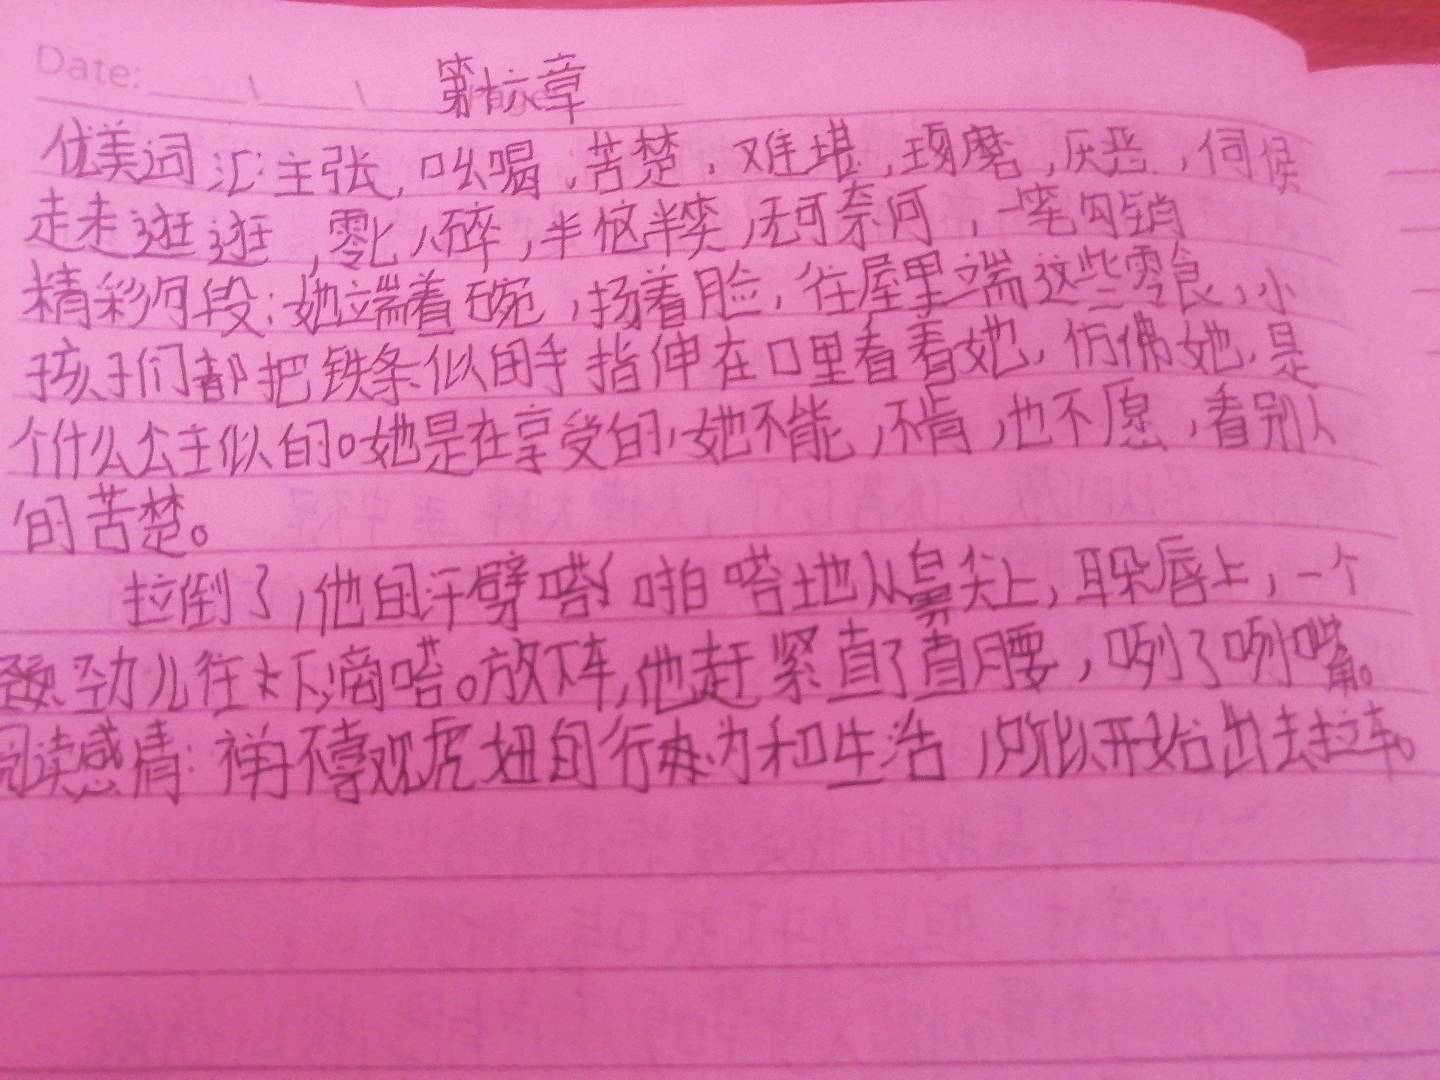 Date:
第十六章
优美词汇:主张,吆喝,苦楚,难堪,琢磨,厌恶,伺候
走走逛逛,零七八碎,半恼半笑,无可奈何,一笔勾销
精彩片段:她端着碗,扬着脸,往屋里端这些零食,小
孩子们都把铁条似的手指伸在口里看着她,仿佛她,是
个什么公主似的。她是在享受的,她不能,不肯,也不愿,看别人
的苦楚。
拉倒了,他的汗劈嗒啪嗒地从鼻尖上,耳朵唇上,一个
劲儿往下滴嗒。放下车,他赶紧直了直腰,咧了咧嘴。
阅读感情:祥子不喜欢虎妞的行为和生活,所以开始出去拉车。